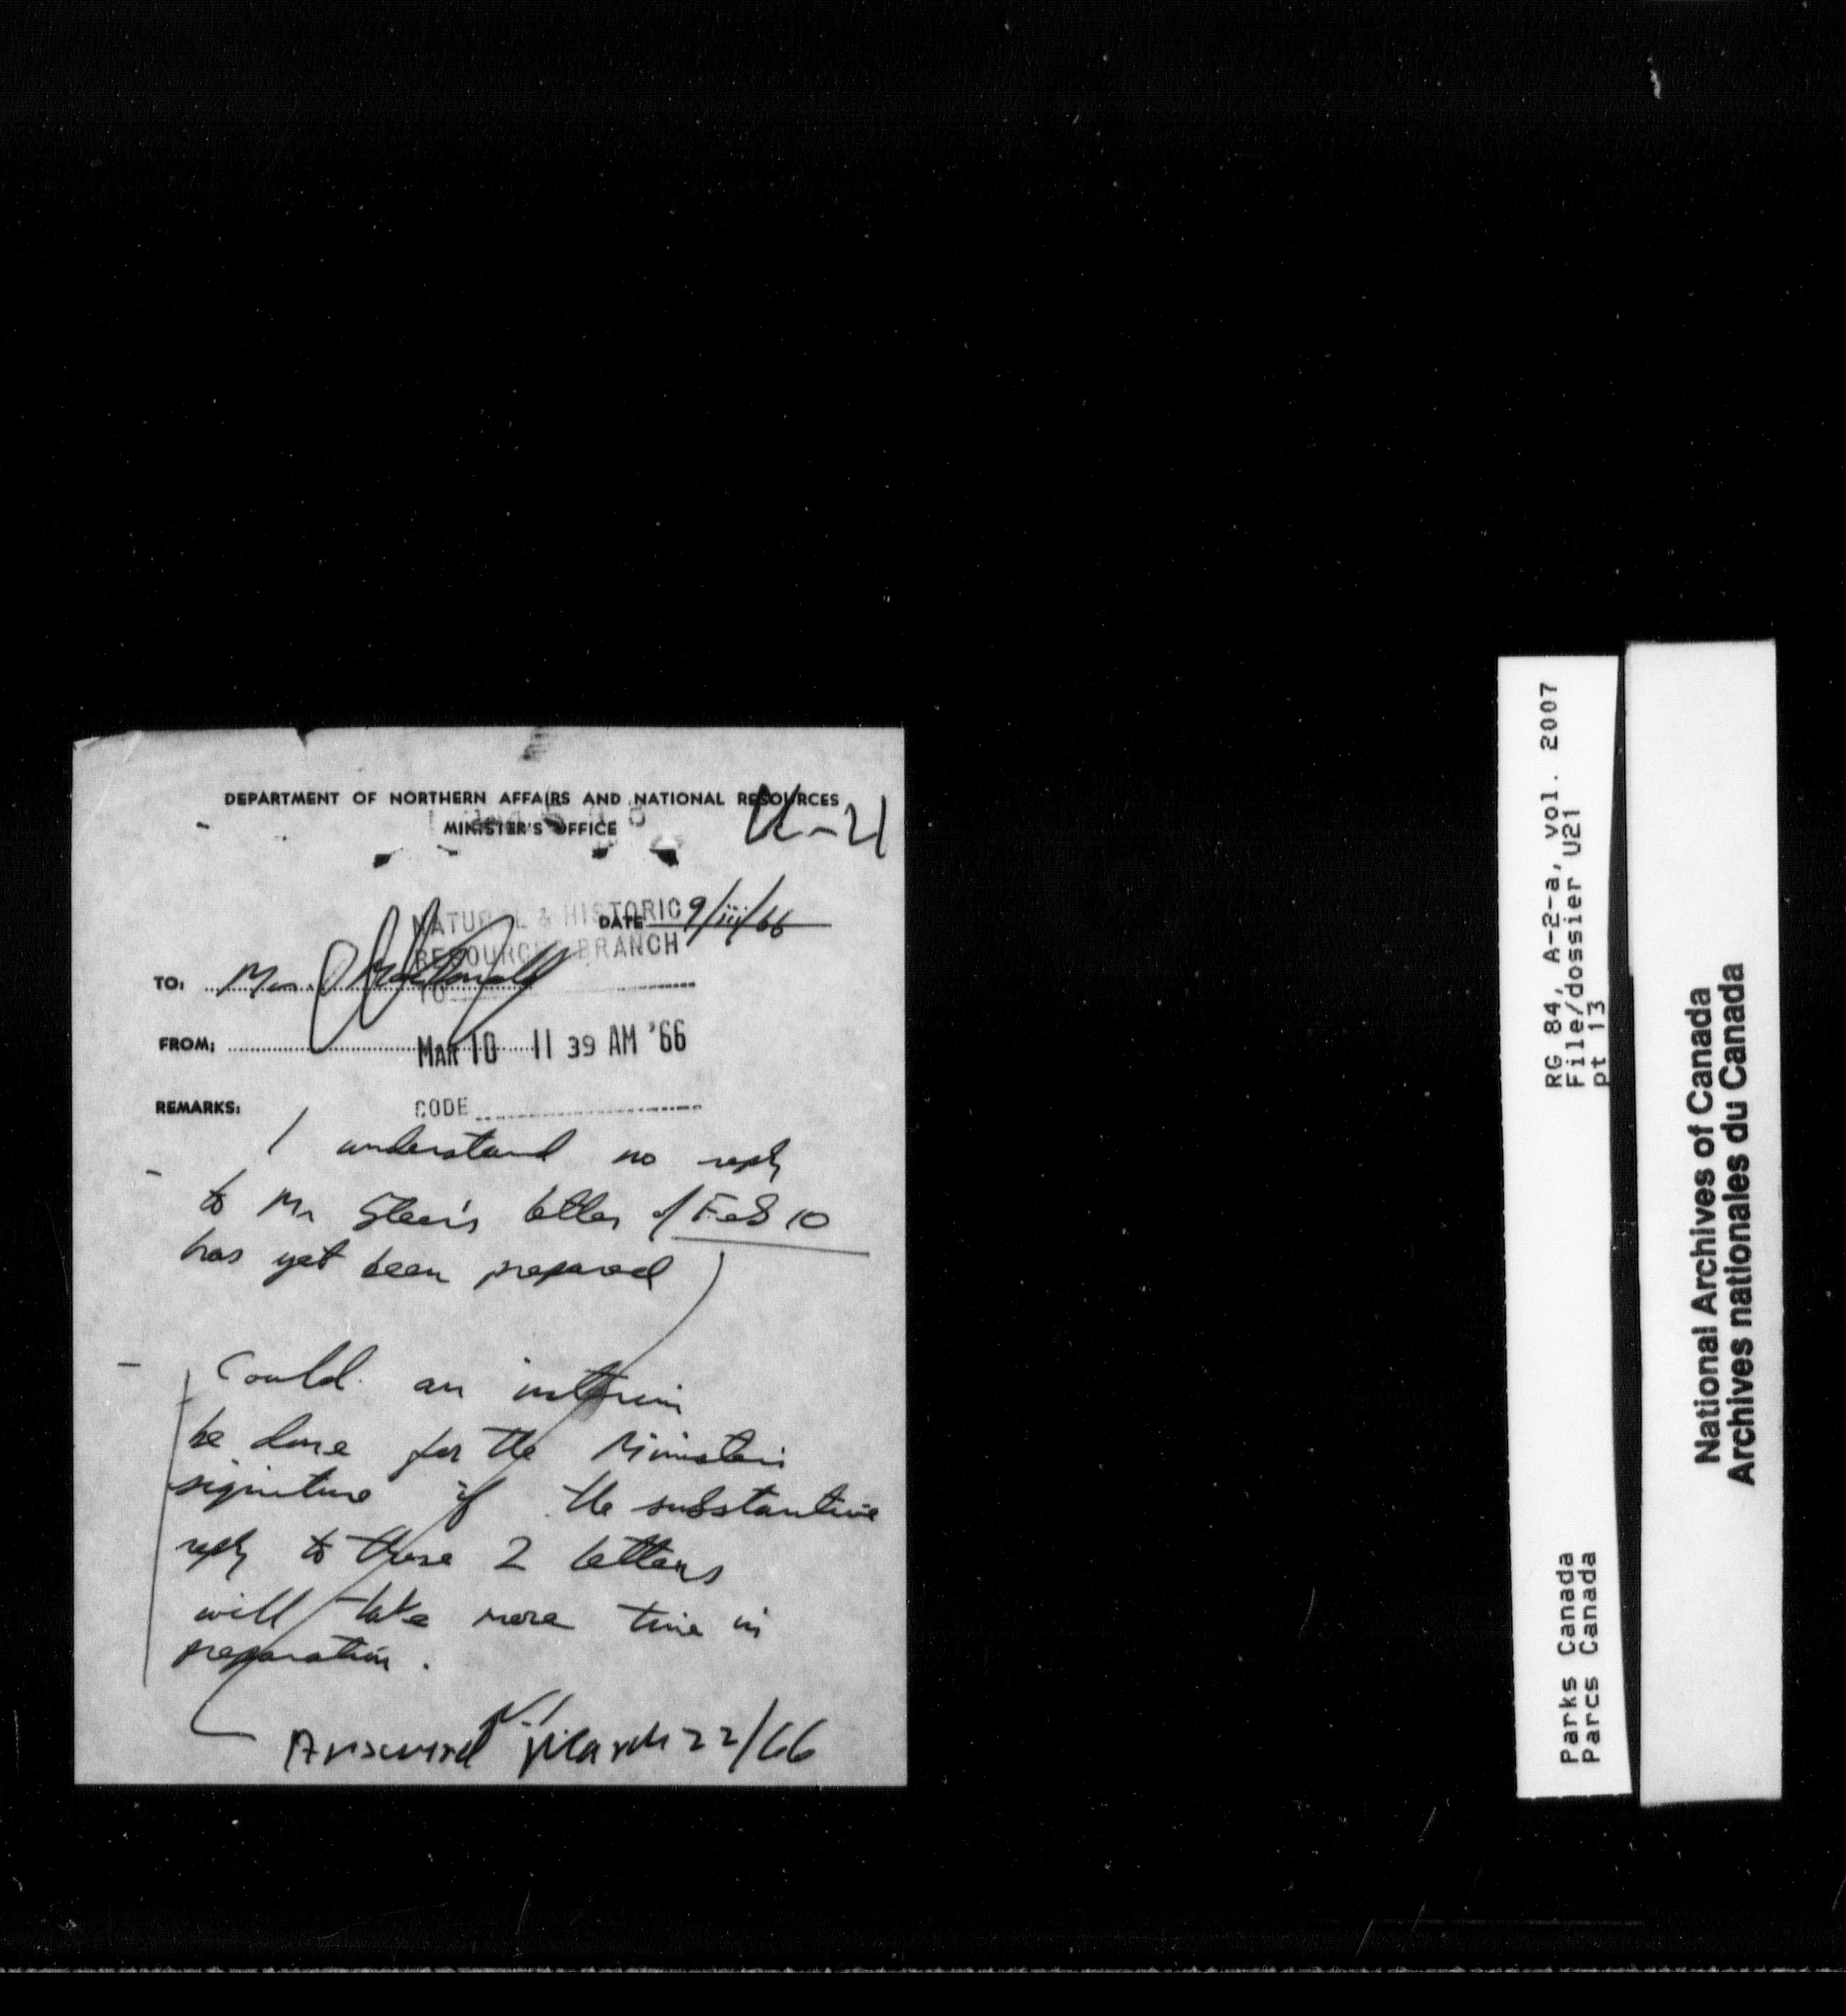 DEPARTMENT OF NORTHERN AFFAIRS AND NATIONAL RESOURCES
MINISTER'S OFFICE
U-21
NATURAL & HISTORIC
RESOURCES BRANCH
DATE 9/iii/66
TO: Mr.
TO
FROM:
MAR 10 11 39 AM '66
REMARKS:
CODE
I understand no reply
to Mr letter of Feb 10
has yet been prepared
- Could an interim
be done for the Minister's
signature if the substantive
reply to these 2 letters
will take more time in
preparation.
Answered March 22/66
RG 84, A-2-a, vol. 2007
File/dossier U21
pt 13
Parks Canada
Parcs Canada
National Archives of Canada
Archives nationales du Canada